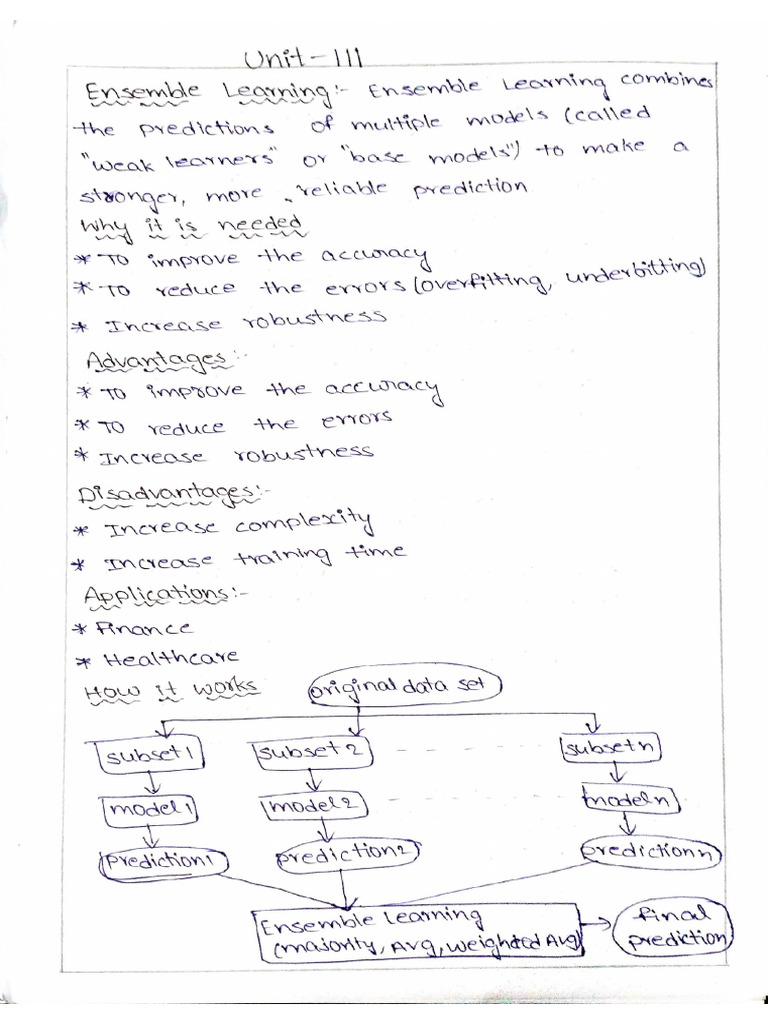 Unit-III
Ensemble Learning:- Ensemble Learning combines
the predictions of multiple models (called
"weak learners" or "base models") to make a
stronger, more reliable prediction
Why it is needed
* To improve the accuracy
* To reduce the errors (overfitting, underbitting)
* Increase robustness
Advantages:-
* To improve the accuracy
* To reduce the errors
* Increase robustness
Disadvantages:-
* Increase complexity
* Increase training time
Applications:-
* Finance
* Healthcare
How it works
original data set
subset1 subset2 subsetn
model1 model2 modeln
prediction1 prediction2 predictionn
Ensemble Learning
(majority, Avg, weighted Avg)
final
prediction